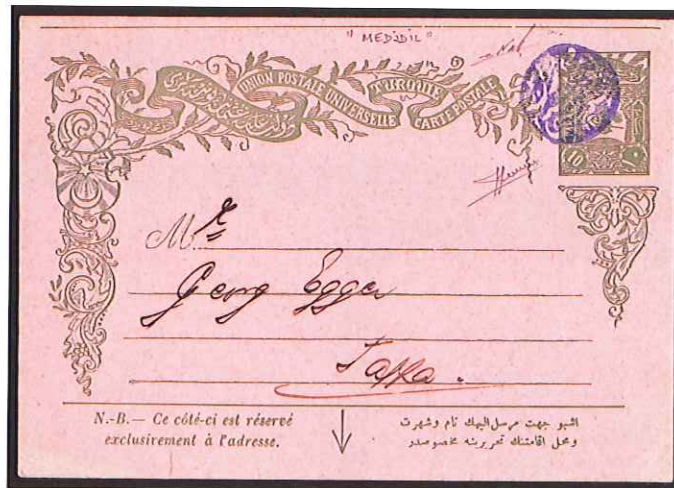 " MEDJDIL "
UNION POSTALE UNIVERSELLE
TURQUIE
CARTE POSTALE
10
Mr
Georg Egger
Jaffa.
N.-B. — Ce côté-ci est réservé
exclusivement à l'adresse.
اشبو جهت مرسل اليهك نام وشهرت
ومحل اقامتنك تحريرينه مخصوصدر